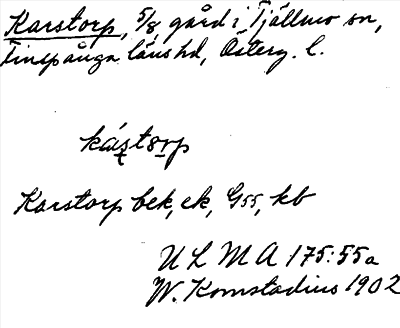 Karstorp, 5/8 gård i Tjällmo sn,
Finspånga läns hd, Österg. l.
kástorp
Karstorp bek, ek, G55, kb
ULMA 175:55a
W. Komstadius 1902